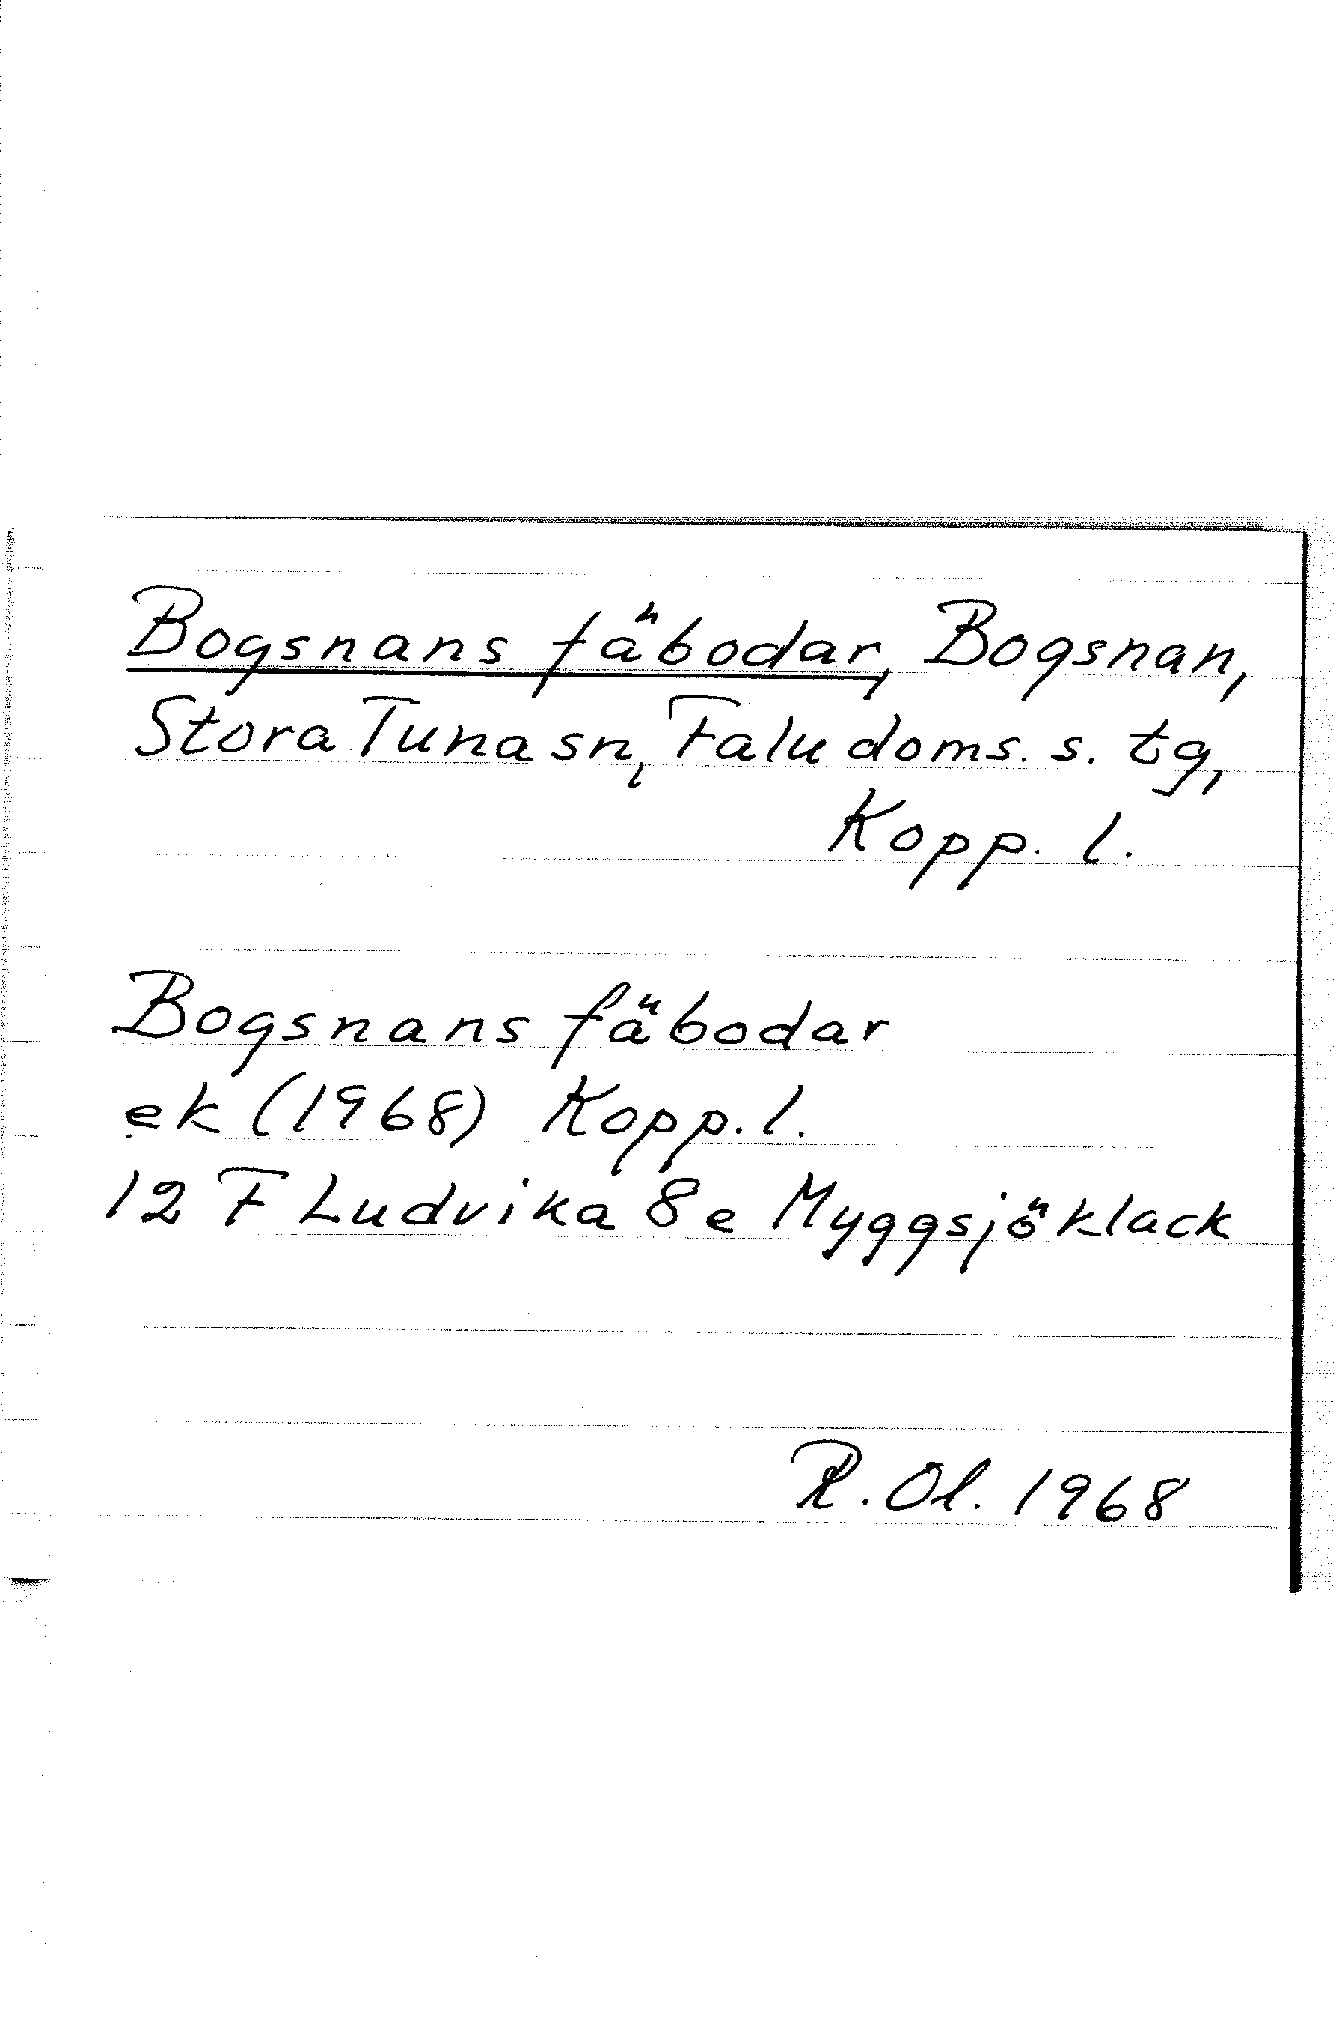 Bogsnans fäbodar, Bogsnan,
Stora Tuna sn, Falu doms. s. tg,
Kopp. l.
Bogsnans fäbodar
ek (1968) Kopp. l.
12 F Ludvika 8e Myggsjöklack
R. Ol. 1968